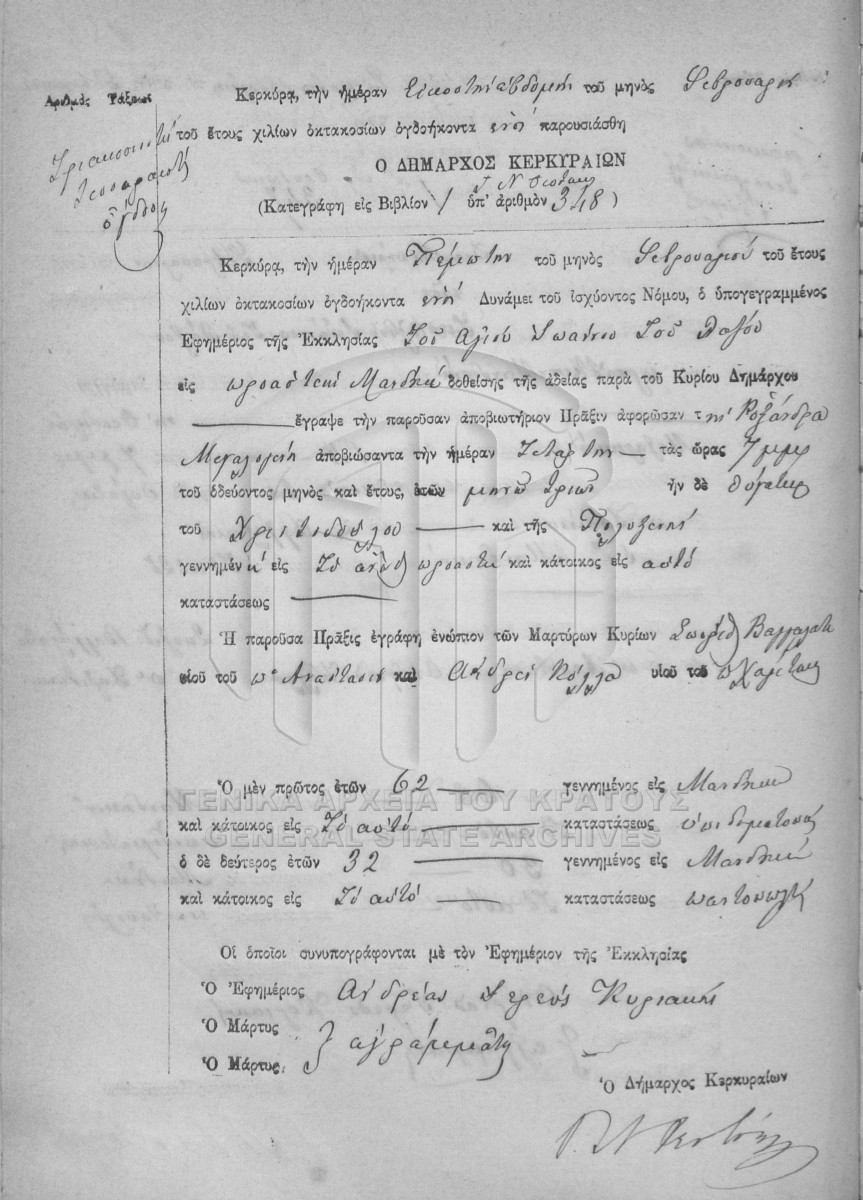 Ἀριθμὸς Τάξεως
Τριακοσιοστὴ
Τεσσαρακοστὴ
ὀγδόη
Κερκύρα, τὴν ἡμέραν Εἰκοστὴν ἑβδόμην τοῦ μηνὸς Φεβρουαρίου
τοῦ ἔτους χιλίων ὀκτακοσίων ὀγδοήκοντα ἐννέα παρουσιάσθη
Ο ΔΗΜΑΡΧΟΣ ΚΕΡΚΥΡΑΙΩΝ
(Κατεγράφη εἰς Βιβλίον ὑπ' ἀριθμὸν 348)
Κερκύρα, τὴν ἡμέραν Πέμπτην τοῦ μηνὸς Φεβρουαρίου τοῦ ἔτους
χιλίων ὀκτακοσίων ὀγδοήκοντα Δυνάμει τοῦ ἰσχύοντος Νόμου, ὁ ὑπογεγραμμένος
Ἐφημέριος τῆς Ἐκκλησίας Τοῦ Ἁγίου Ἰωάννου Τοῦ Λαζου
εἰς προάστειον Μανδούκι δοθείσης τῆς ἀδείας παρὰ τοῦ Κυρίου Δημάρχου
ἔγραψε τὴν παροῦσαν ἀποβιωτήριον Πρᾶξιν ἀφορῶσαν τὴν Ροξάνδρα
ἀποβιώσαντα τὴν ἡμέραν Τετάρτην τὰς ὥρας 7
τοῦ ὁδεύοντος μηνὸς καὶ ἔτους, ἐτῶν μηνῶν τριῶν ἦν δὲ θυγάτηρ
τοῦ Χριστοδούλου καὶ τῆς Πολυξένης
γεννημέν εἰς Τὸ προάστειον καὶ κάτοικος εἰς αὐτό
καταστάσεως
Ἡ παροῦσα Πρᾶξις ἐγράφη ἐνώπιον τῶν Μαρτύρων Κυρίων
υἱοῦ τοῦ Ἀναστασίου καὶ Ἀνδρέα Κόλλα υἱοῦ τοῦ
Ὁ μὲν πρῶτος ἐτῶν 62 γεννημένος εἰς Μανδούκι
ΓΕΝΙΚΑ ΑΡΧΕΙΑ ΤΟΥ ΚΡΑΤΟΥΣ
καὶ κάτοικος εἰς Τὸ αὐτό καταστάσεως ὑποδηματοποιός
GENERAL STATE ARCHIVES
ὁ δὲ δεύτερος ἐτῶν 32 γεννημένος εἰς Μανδούκι
καὶ κάτοικος εἰς Τὸ αὐτό καταστάσεως παντοπώλης
Οἱ ὁποῖοι συνυπογράφονται μὲ τὸν Ἐφημέριον τῆς Ἐκκλησίας
Ὁ Ἐφημέριος Ἀνδρέας Ἱερεὺς Κυριακὴς
Ὁ Μάρτυς ἀγράμματοι
Ὁ Μάρτυς
Ὁ Δήμαρχος Κερκυραίων